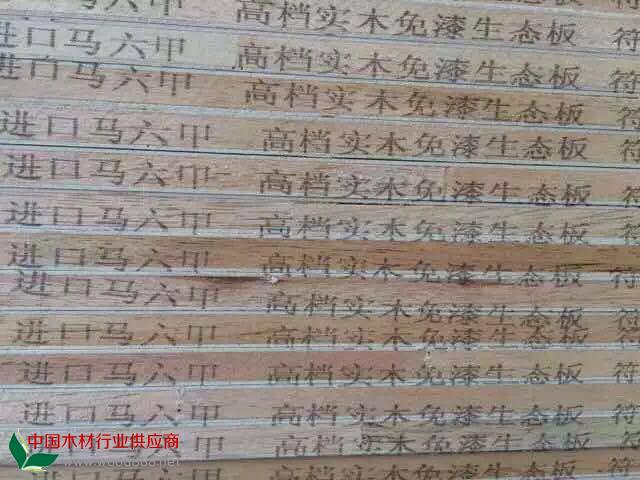 高档实木免漆生态板 符
进口马六甲 高档实木免漆生态板 符
进口马六甲 高档实木免漆生态板 符
进口马六甲 高档实木免漆生态板 符
进口马六甲 高档实木免漆生态板 符
进口马六甲 高档实木免漆生态板 符
进口马六甲 高档实木免漆生态板 符
进口马六甲 高档实木免漆生态板 符
进口马六甲 高档实木免漆生态板 符
进口马六甲 高档实木免漆生态板 符
进口马六甲 高档实木免漆生态板 符
六甲 高档实木免漆生态板 符
高档实木免漆生态板
中国木材行业供应商